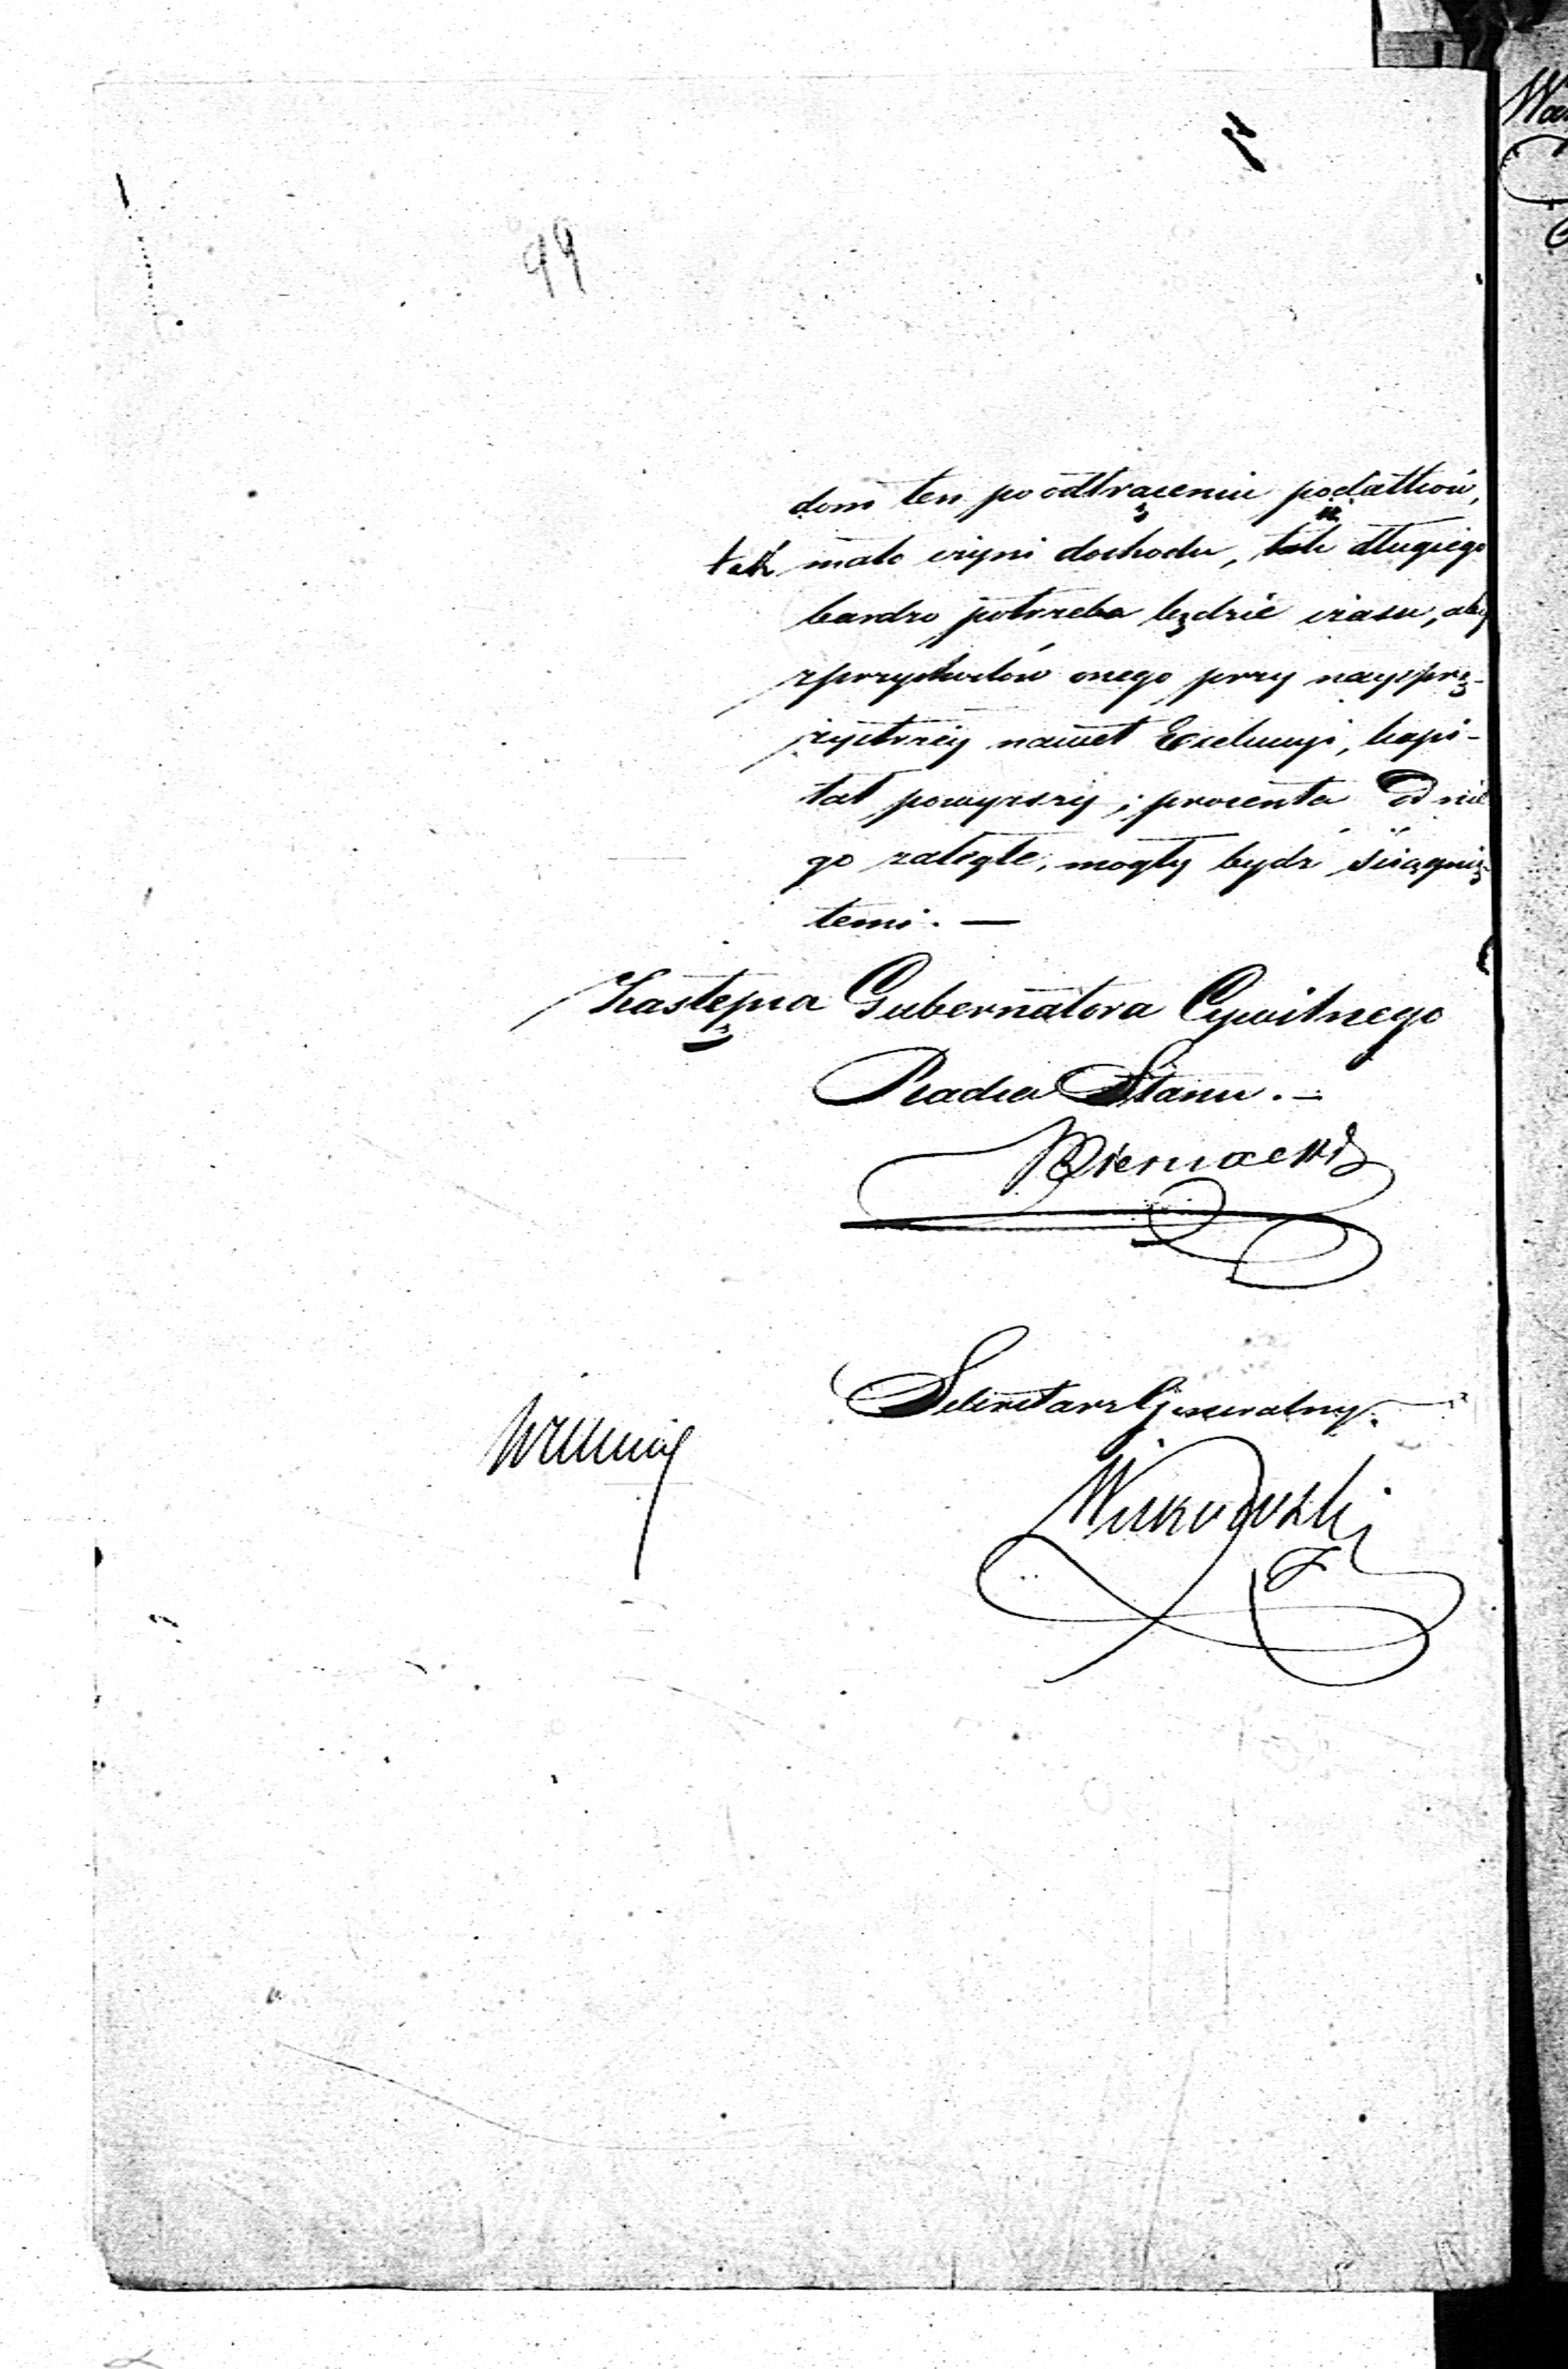 99
dom ten po odtrąceniu podatków,
tak mało czyni dochodu, tak długiego
bardzo potrzeba będzie czasu, aby
z przychodów onego przy naysprę-
żystrzey nawet Exekucyi, kapi-
tał powyższy i procenta od nie
go zaległe, mogły bydź ściągnię-
temi. —
Zastępca Gubernatora Cywilnego
Radca Stanu. —
Biernacki
Sekretarz Generalny. —